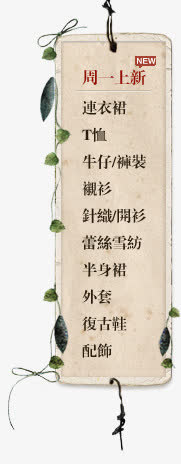 NEW
周一上新
連衣裙
T恤
牛仔/褲裝
襯衫
針織/開衫
蕾絲雪紡
半身裙
外套
復古鞋
配飾